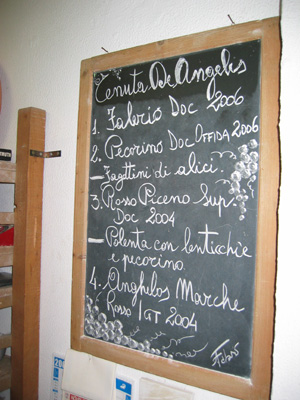 Tenuta De Angelis
1. Falerio Doc 2006
2. Pecorino Doc Offida 2006
– Fagottini di alici.
3. Rosso Piceno Sup.
Doc 2004
– Polenta con lenticchie
e pecorino.
4. Anghelos Marche
Rosso IGT 2004